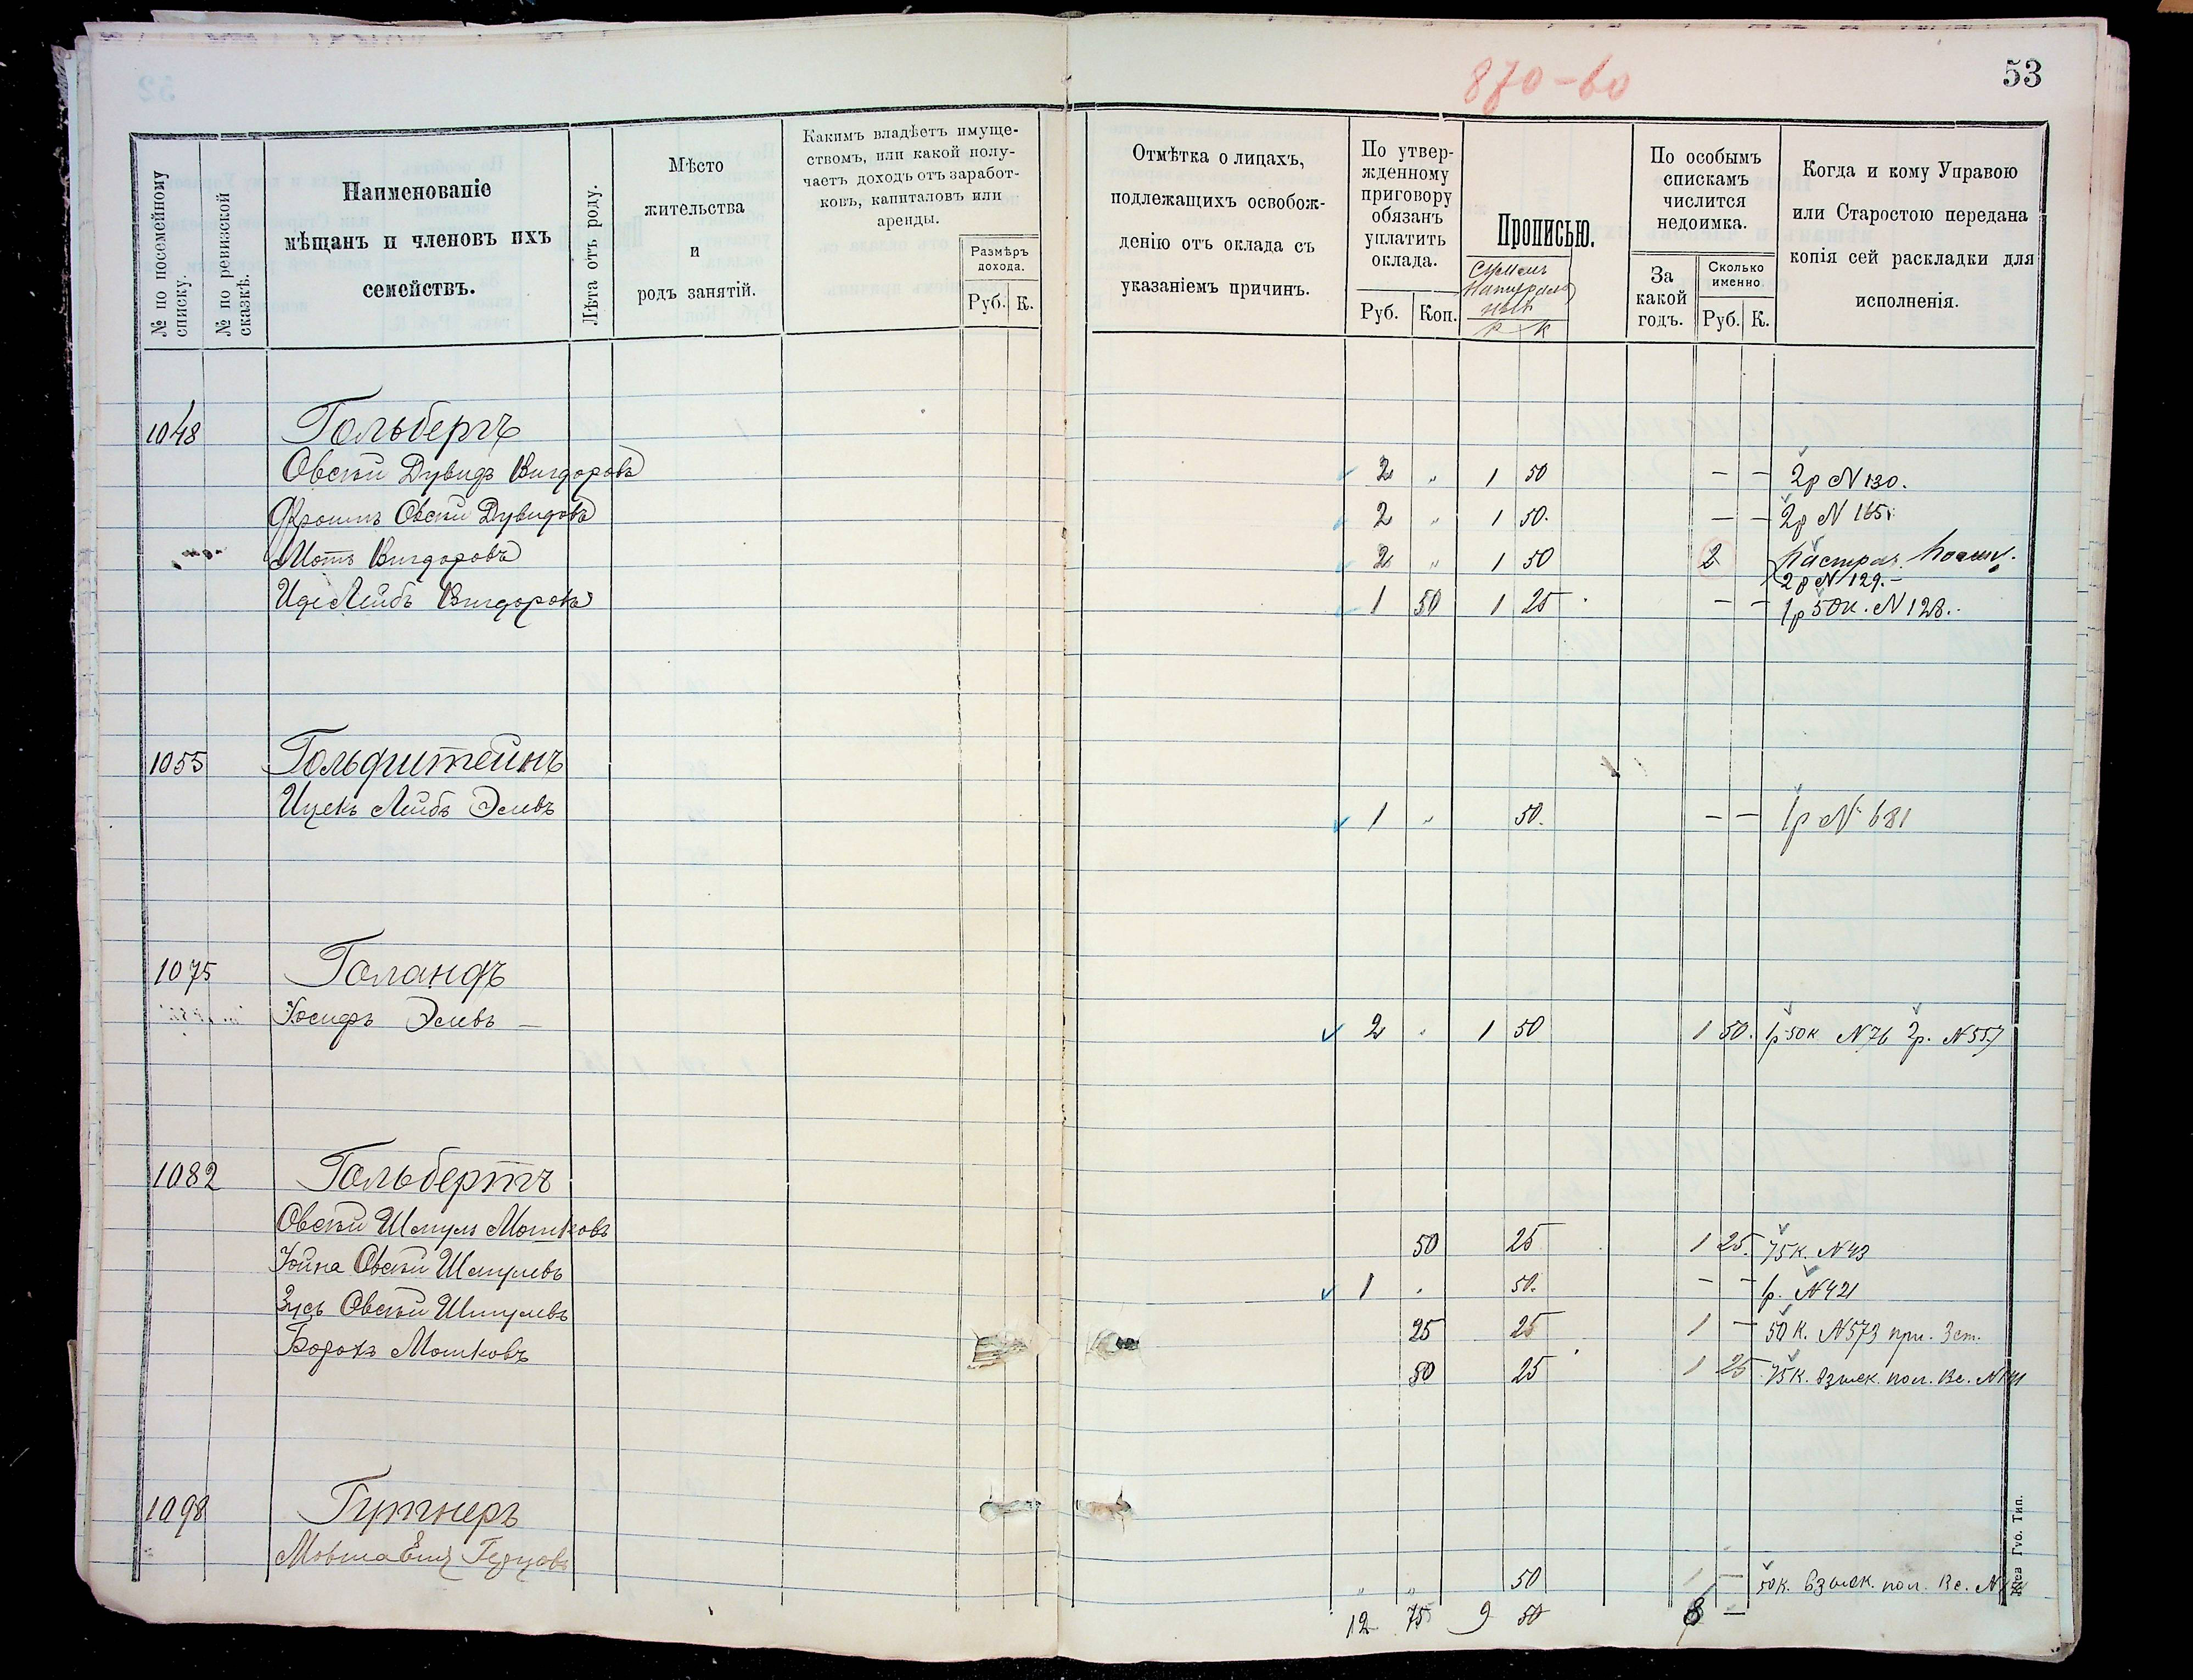 870-60
53
№ по посемейному списку.
№ по ревизской сказкѣ.
Наименованіе
мѣщанъ и членовъ ихъ
семействъ.
Лѣта отъ роду.
Мѣсто
жительства
и
родъ занятій.
Какимъ владѣетъ имуще-
ствомъ, или какой полу-
чаетъ доходъ отъ заработ-
ковъ, капиталовъ или
аренды.
Размѣръ
дохода.
Руб. К.
Отмѣтка о лицахъ,
подлежащихъ освобож-
денію отъ оклада съ
указаніемъ причинъ.
По утвер-
жденному
приговору
обязанъ
уплатить
оклада.
Руб. Коп.
Прописью.
Р К
По особымъ
спискамъ
числится
недоимка.
За
какой
годъ.
Сколько
именно
Руб. К.
Когда и кому Управою
или Старостою передана
копія сей раскладки для
исполненія.
1048 Гольбергъ
Овсѣй Дувидъ Вигдоровъ 2 „ 1 50 — — 2р N 130.
Фроимъ Овсѣй Дувидовъ 2 „ 1 50. — — 2р N 165.
Мотъ Вигдоровъ 2 „ 1 50 2
2р N 129.-
Иде Лейбъ Вигдоровъ 1 50 1 25 — — 1р 50к. N 128.
1055 Гольдштейнъ
Ицекъ Лейбъ Элевъ 1 „ 50. — — 1р N 681
1075 Голандъ
Іосифъ Элевъ — 2 „ 1 50 1 50. 1р 50к N 76 2р. N 557
1082 Гольбертъ
Овсѣй Шмуль Мошковъ 50 25 1 25. 75к. N 43
Хойна Овсѣй Шмулевъ 1 . 50. — — 1р. N 421
Зусь Овсѣй Шмулевъ 25 25 1 — 50 к. N 573 при. 3 ст.
Борохъ Мошковъ 50 25 1 25 75к. взыск. пол. Вс.
1098 Гутнеръ
Мовша Ель „ „ 50 1 — 50к. взыск. пол. Вс.
12 75 9 50 8 —
Губ. Тип.